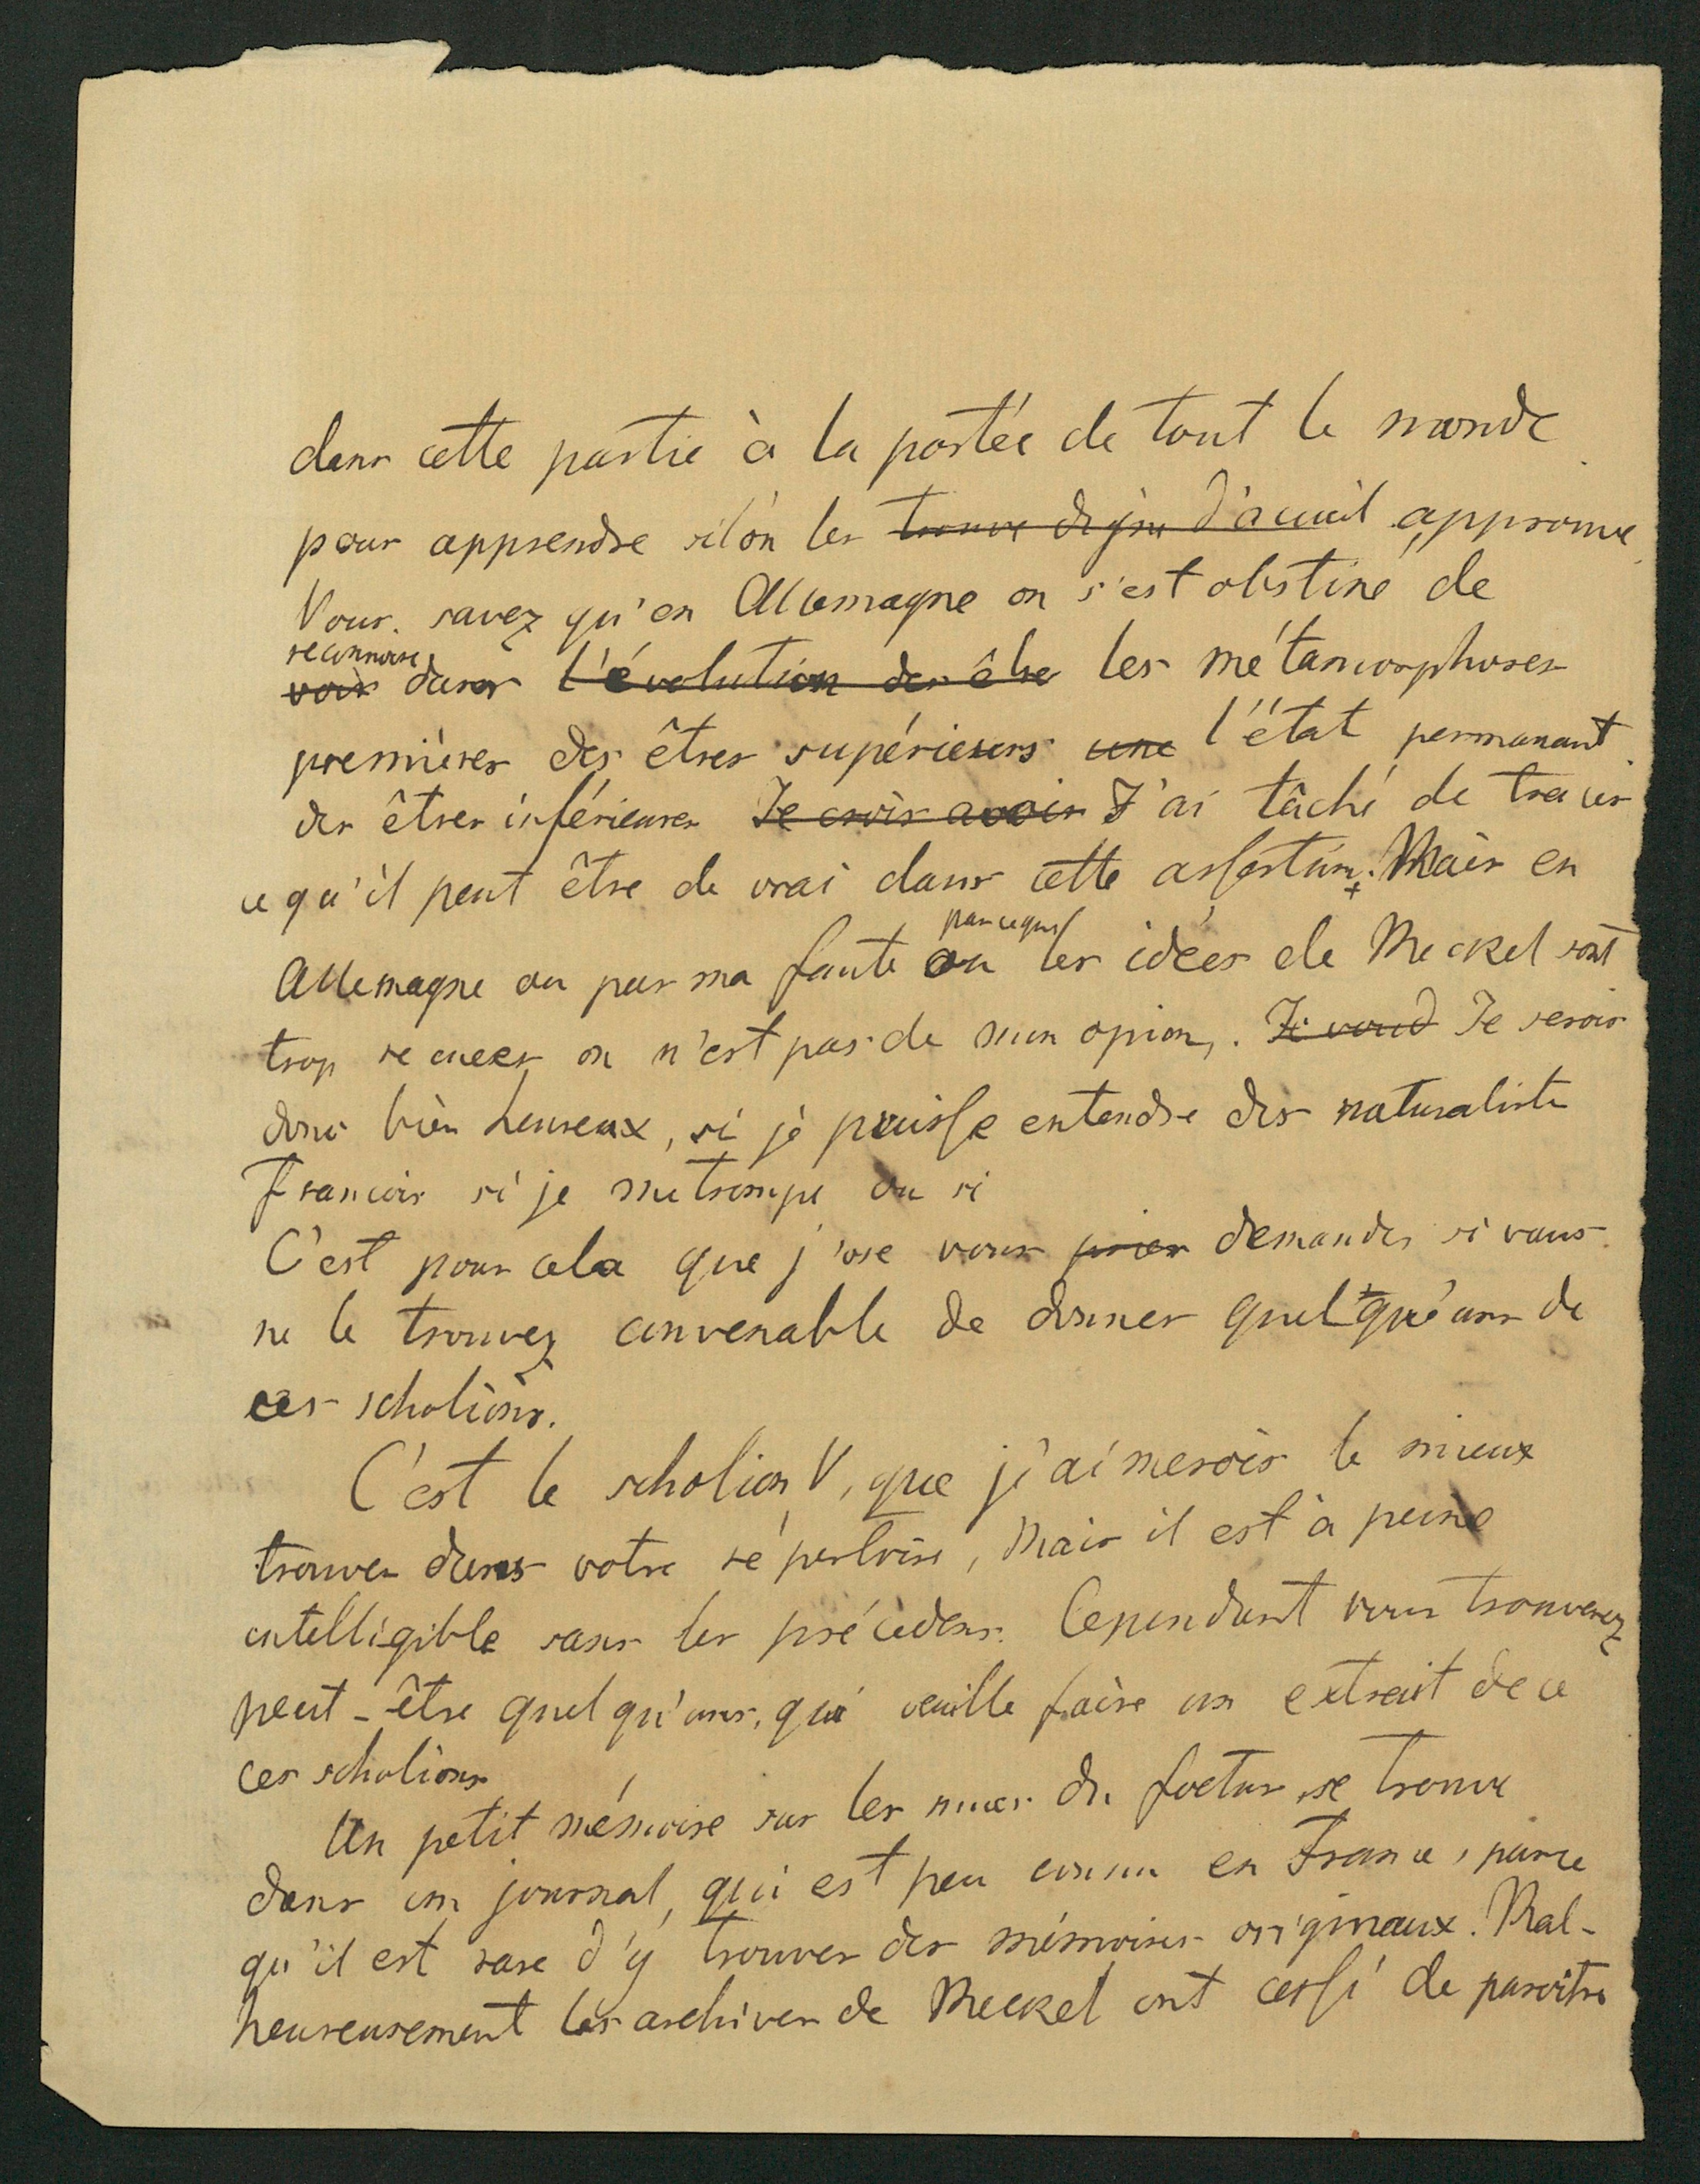 dans cette partie à la portée de tout le monde
pour apprendre si l'on les trouve digne d'acueil approuve
Vous savez qu'en Allemagne on s'est obstiné de
reconnoire
voir dans l'évolution des être les métamorphoses
premières des êtres supérieurs une l'état permanant
des êtres inférieures Je crois avoir J'ai tâché de tracer
ce qu'il peut être de vrai dans cette assertion. + Mais en
parceque
Allemagne ou par ma faute ou les idées de Meckel sont
trop recues on n'est pas de mon opion. Je voud Je serois
donc bien heureux, si je puisse entendre des naturaliste
Francois si je me trompe ou si
C'est pour cela que j'ose vous prier demander si vous
ne le trouvez convenable de donner quelqu'uns de
ces scholions.
C'est le scholion V, que j'aimerois le mieux
trouver dans votre répertoire, Mais il est à peine
intelligible sans les précédens. Cependant vous trouverez
peut-être quelqu'uns, qui veuille faire un extrait de ce
ces scholions
Un petit mémoire sur les mues du foetus se trouve
dans un journal, qui est peu connu en France, parce
qu'il est rare d'y trouver des mémoires originaux. Mal-
heureusement les archives de Meckel ont cessé de paroitre